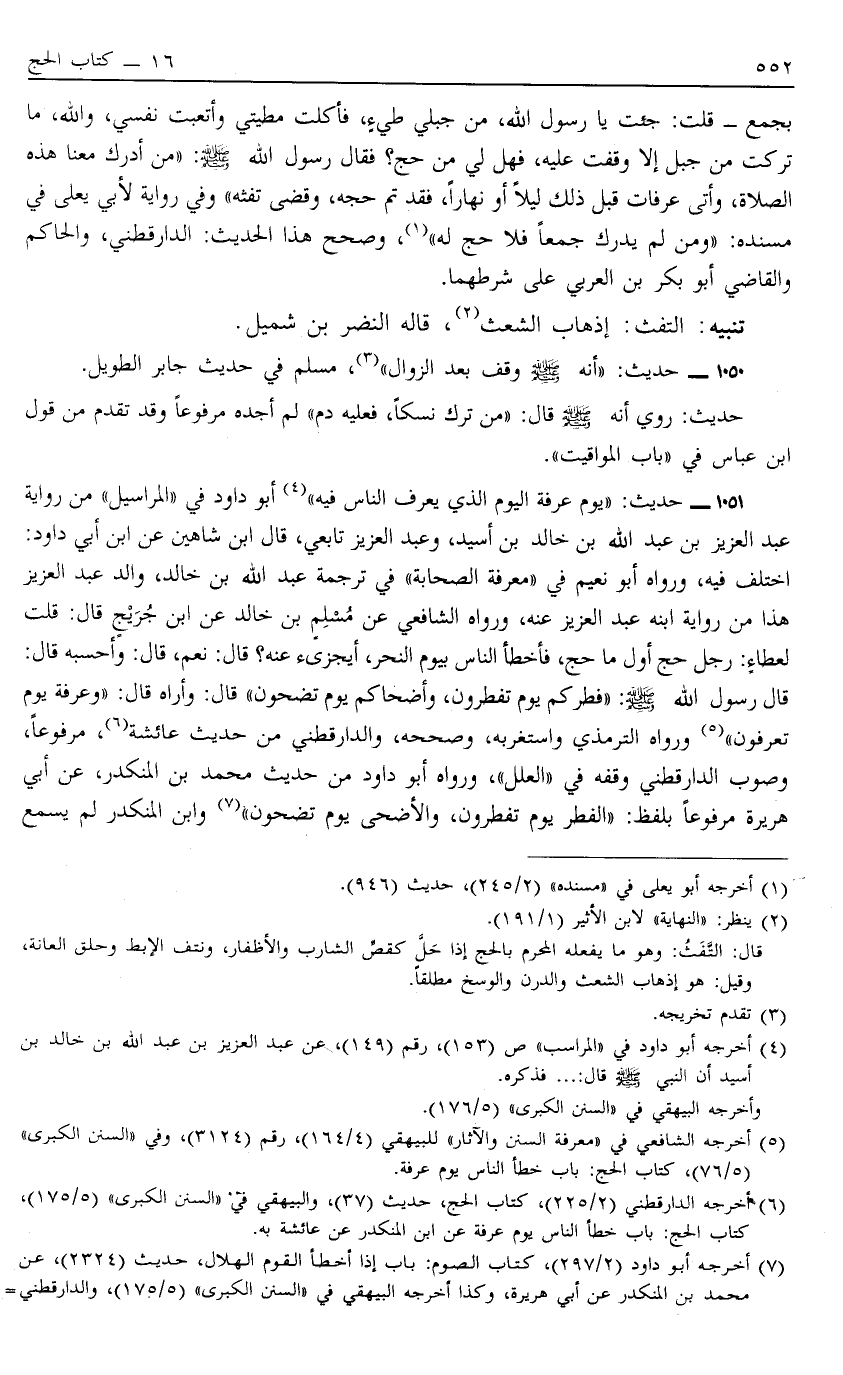 ٥٥٢ ١٦ ـ كتاب الحج
بجمع ـ قلت: جئت يا رسول الله، من جبلي طيءٍ، فأكلت مطيتي وأتعبت نفسي، والله، ما
تركت من جبل إلا وقفت عليه، فهل لي من حج؟ فقال رسول الله ﷺ: «من أدرك معنا هذه
الصلاة، وأتى عرفات قبل ذلك ليلاً أو نهاراً، فقد تم حجه، وقضى تفثه» وفي رواية لأبي يعلى في
مسنده: «ومن لم يدرك جمعاً فلا حج له»(١)، وصحح هذا الحديث: الدارقطني، والحاكم
والقاضي أبو بكر بن العربي على شرطهما.
تنبيه: التفث: إذهاب الشعث(٢)، قاله النضر بن شميل.
١٠٥٠ ـ حديث: «أنه ﷺ وقف بعد الزوال»(٣)، مسلم في حديث جابر الطويل.
حديث: روي أنه ﷺ قال: «من ترك نسكاً، فعليه دم» لم أجده مرفوعاً وقد تقدم من قول
ابن عباس في «باب المواقيت».
١٠٥١ ـ حديث: «يوم عرفة اليوم الذي يعرف الناس فيه»(٤) أبو داود في «المراسيل» من رواية
عبد العزيز بن عبد الله بن خالد بن أسيد، وعبد العزيز تابعي، قال ابن شاهين عن ابن أبي داود:
اختلف فيه، ورواه أبو نعيم في «معرفة الصحابة» في ترجمة عبد الله بن خالد، والد عبد العزيز
هذا من رواية ابنه عبد العزيز عنه، ورواه الشافعي عن مُسْلِمِ بن خالد عن ابن جُرَيْجٍ قال: قلت
لعطاءٍ: رجل حج أول ما حج، فأخطأ الناس بيوم النحر، أيجزىء عنه؟ قال: نعم، قال: وأحسبه قال:
قال رسول الله ﷺ: «فطركم يوم تفطرون، وأضحاكم يوم تضحون» قال: وأراه قال: «وعرفة يوم
تعرفون»(٥) ورواه الترمذي واستغربه، وصححه، والدارقطني من حديث عائشة(٦)، مرفوعاً،
وصوب الدارقطني وقفه في «العلل»، ورواه أبو داود من حديث محمد بن المنكدر، عن أبي
هريرة مرفوعاً بلفظ: «الفطر يوم تفطرون، والأضحى يوم تضحون»(٧) وابن المنكدر لم يسمع
(١) أخرجه أبو يعلى في «مسنده» (٢٤٥/٢)، حديث (٩٤٦).
(٢) ينظر: «النهاية» لابن الأثير (١٩١/١).
قال: التَّفَثُ: وهو ما يفعله المحرم بالحج إذا حَلَّ كقصٌ الشارب والأظفار، ونتف الإبط وحلق العانة،
وقيل: هو إذهاب الشعث والدرن والوسخ مطلقاً.
(٣) تقدم تخريجه.
(٤) أخرجه أبو داود في «المراسب» ص (١٥٣)، رقم (١٤٩)، عن عبد العزيز بن عبد الله بن خالد بن
أسيد أن النبي ﷺ قال:... فذكره.
وأخرجه البيهقي في «السنن الكبرى» (١٧٦/٥).
(٥) أخرجه الشافعي في «معرفة السنن والآثار» للبيهقي (١٦٤/٤)، رقم (٣١٢٤)، وفي «السنن الكبرى»
(٧٦/٥)، كتاب الحج: باب خطأ الناس يوم عرفة.
(٦) أخرجه الدارقطني (٢٢٥/٢)، كتاب الحج، حديث (٣٧)، والبيهقي في «السنن الكبرى» (١٧٥/٥)،
كتاب الحج: باب خطأ الناس يوم عرفة عن ابن المنكدر عن عائشة به.
(٧) أخرجه أبو داود (٢٩٧/٢)، كتاب الصوم: باب إذا أخطأ القوم الهلال، حديث (٢٣٢٤)، عن
محمد بن المنكدر عن أبي هريرة، وكذا أخرجه البيهقي في «السنن الكبرى» (١٧٥/٥)، والدارقطني =